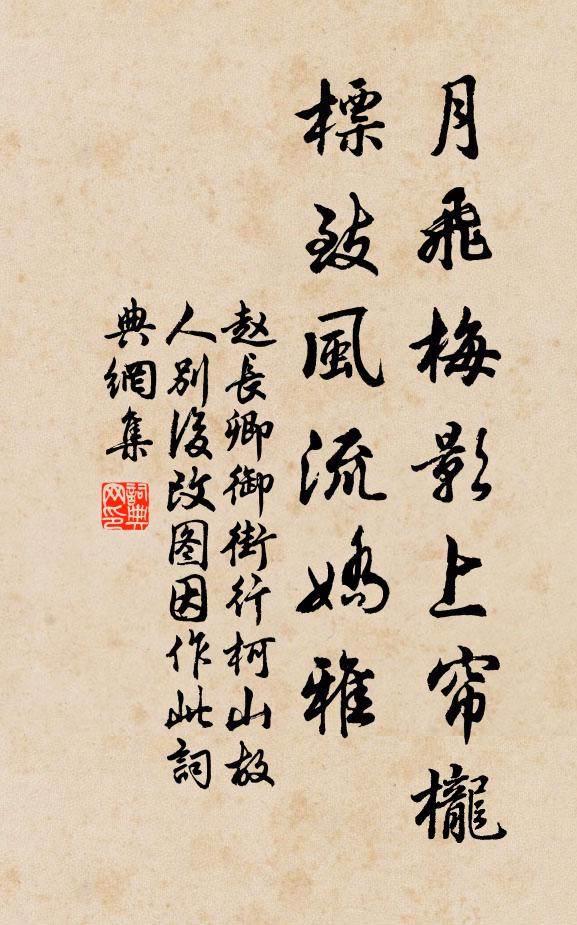 月飛梅影上帘櫳
標致風流嬌雅
赵長卿御街行柯山故
人别後改图因作此詞
典網集
詞典
网印